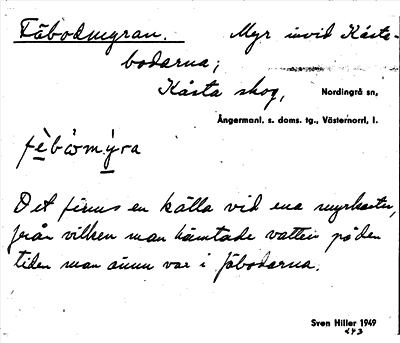 Fäbodmyran. Myr invid Kåsta-
bodarna;
Kåsta skog,
Nordingrå sn,
Ångermanl. s. doms. tg., Västernorrl. l.
fèbòmýra
Det finns en källa vid ena myrkanten,
från vilken man hämtade vatten på den
tiden man ännu var i fäbodarna.
Sven Hiller 1949